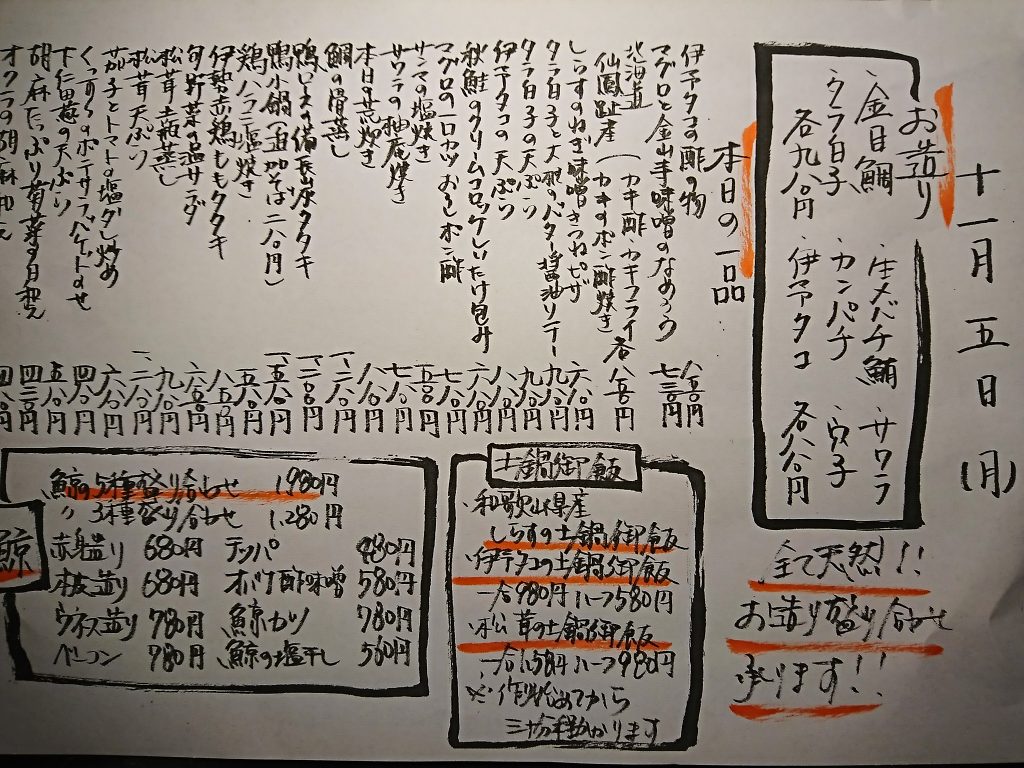 十一月五日(月)
お造り
・金目鯛 ・生メバチ鮪 ・サワラ
・タラ白子 ・カンパチ ・穴子
各九八〇円 ・伊予タコ 各八八〇円
全て天然!!
お造り盛り合わせ
承ります!!
本日の一品
伊予タコの酢の物 八八〇円
マグロと金山寺味噌のなめろう 七三〇円
北海道
仙鳳趾産(カキ酢・カキフライ
カキのポン酢焼き)各八八〇円
しらすのねぎ味噌きつねピザ 六八〇円
タラ白子と大根のバター醤油ソテー 九八〇円
タラ白子の天ぷら 九八〇円
伊予タコの天ぷら 八八〇円
秋鮭のクリームコロッケしいたけ包み 六八〇円
マグロの一口カツおろしポン酢 七八〇円
サンマの塩焼き 五八〇円
サワラの柚庵焼き 七八〇円
本日の荒炊き 八八〇円
鯛の骨蒸し 八八〇円
鴨ロースの備長炭タタキ 一、二八〇円
鴨小鍋(追加そば二八〇円) 一、五八〇円
鶏ハラミ塩焼き 五八〇円
伊勢赤鶏ももタタキ 八五〇円
旬野菜の温サラダ 六八〇円
松茸土瓶蒸し 九八〇円
松茸天ぷら 一、二八〇円
茄子とトマトの塩ダレ炒め 六八〇円
くずし のポテサラバゲットのせ 四八〇円
下仁田葱の天ぷら 五八〇円
胡麻たっぷり菊菜の白和え 四三〇円
オクラの胡麻和え 四八〇円
土鍋御飯
・和歌山県産
しらすの土鍋御飯
・伊予タコの土鍋御飯
一合980円ハーフ580円
・松茸の土鍋御飯
一合1,580円ハーフ980円
※作り始めてから
三十分程かかります
鯨
鯨の5種盛り合わせ 1,980円
〃 3種盛り合わせ 1,280円
赤身造り 680円 テッパ 480円
本皮造り 680円 オバケ酢味噌 580円
ウネス造り 780円 鯨カツ 780円
ベーコン 980円 鯨の塩干し 580円